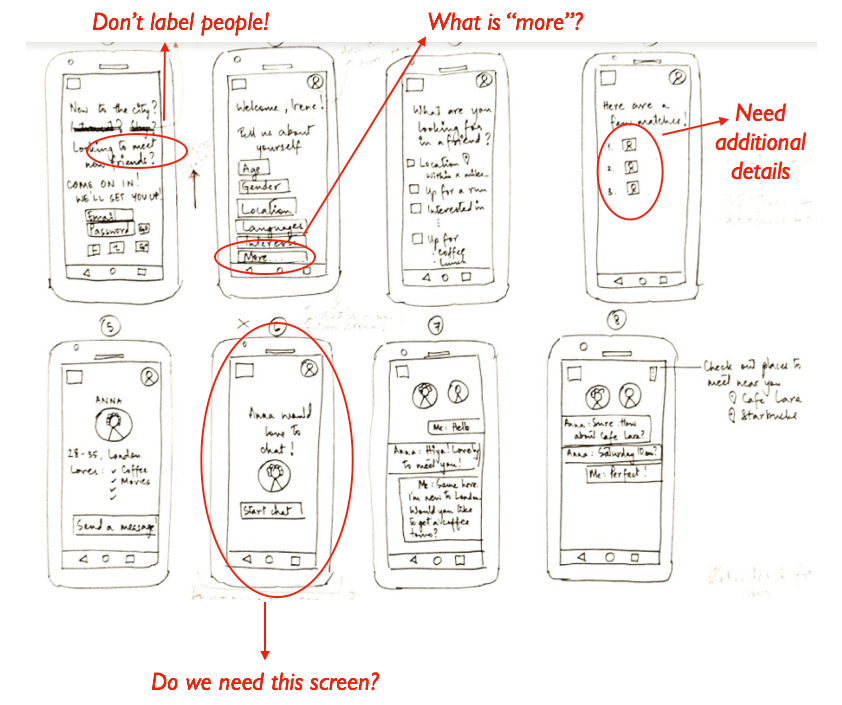 Don't label people!
What is "more"?
New to the city?
Introvert? Shy?
Looking to meet
new friends?
COME ON IN!
WE'LL SET YOU UP!
Email
Password
Welcome, Irene!
Tell us about
yourself
Age
Gender
Location
Languages
Interests
More...
What are you
looking for
in a friend?
Location
Within a miles...
Up for a run
Interested in
Up for
. coffee
. Lunch
Here are a
few matches!
1.
2.
3.
Need
additional
details
5
ANNA
28-35, London
Loves: ✓ Coffee
✓ Movies
✓
✓
Send a message!
x
6
Anna would
love to
chat!
Start chat
7
Me: Hello
Anna: Hiya! Lovely
to meet you!
Me: Same here.
I'm new to London
Would you like
to get a coffee
tomo?
8
Anna: Sure. How
about Cafe Lara?
Anna: Saturday 10am?
Me: Perfect!
Check out places to
meet near you
Cafe Lara
Starbucks
Do we need this screen?